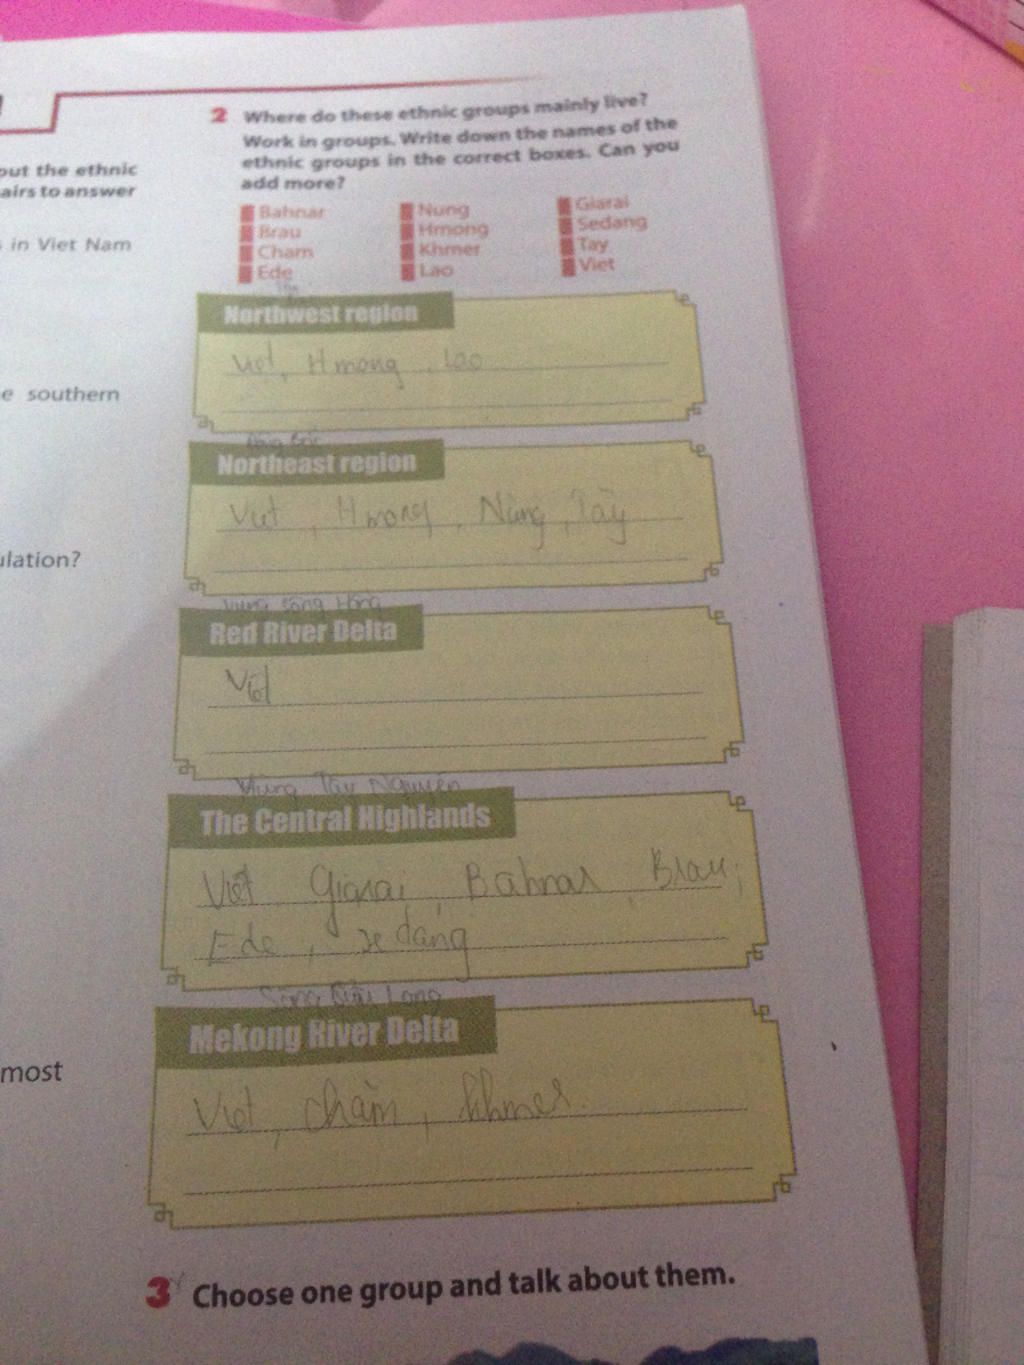 out the ethnic
airs to answer
in Viet Nam
e southern
ulation?
most
2 Where do these ethnic groups mainly live?
Work in groups. Write down the names of the
ethnic groups in the correct boxes. Can you
add more?
Bahnar
Brau
Cham
Ede
Nung
Hmong
Khmer
Lao
Giarai
Sedang
Tay
Viet
Northwest region
Viet, Hmong, Lao
Northeast region
Viet, Hmong, Nùng, Tày
Vùng Sông Hồng
Red River Delta
Việt
Vùng Tây Nguyên
The Central Highlands
Việt, Giarai, Bahnar, Brau,
Ede, sedang
Sông Cửu Long
Mekong River Delta
Viet, chàm, khmer.
3 Choose one group and talk about them.